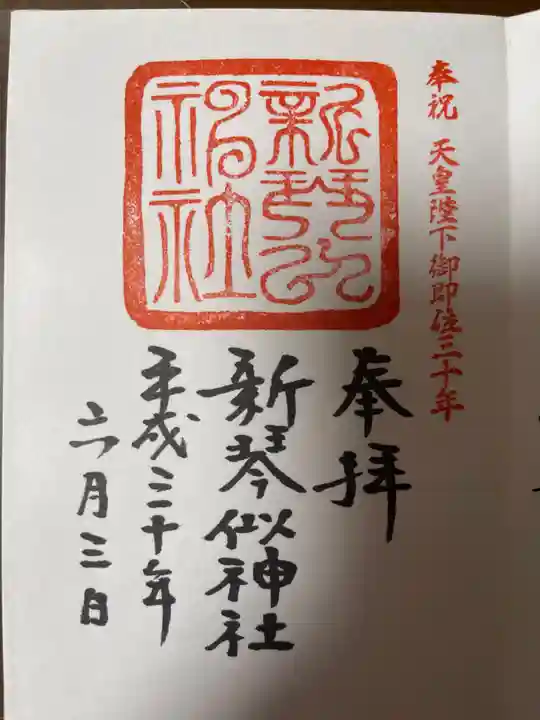 奉祝 天皇陛下御即位三十年
奉拝
新琴似神社
平成三十年
六月三日